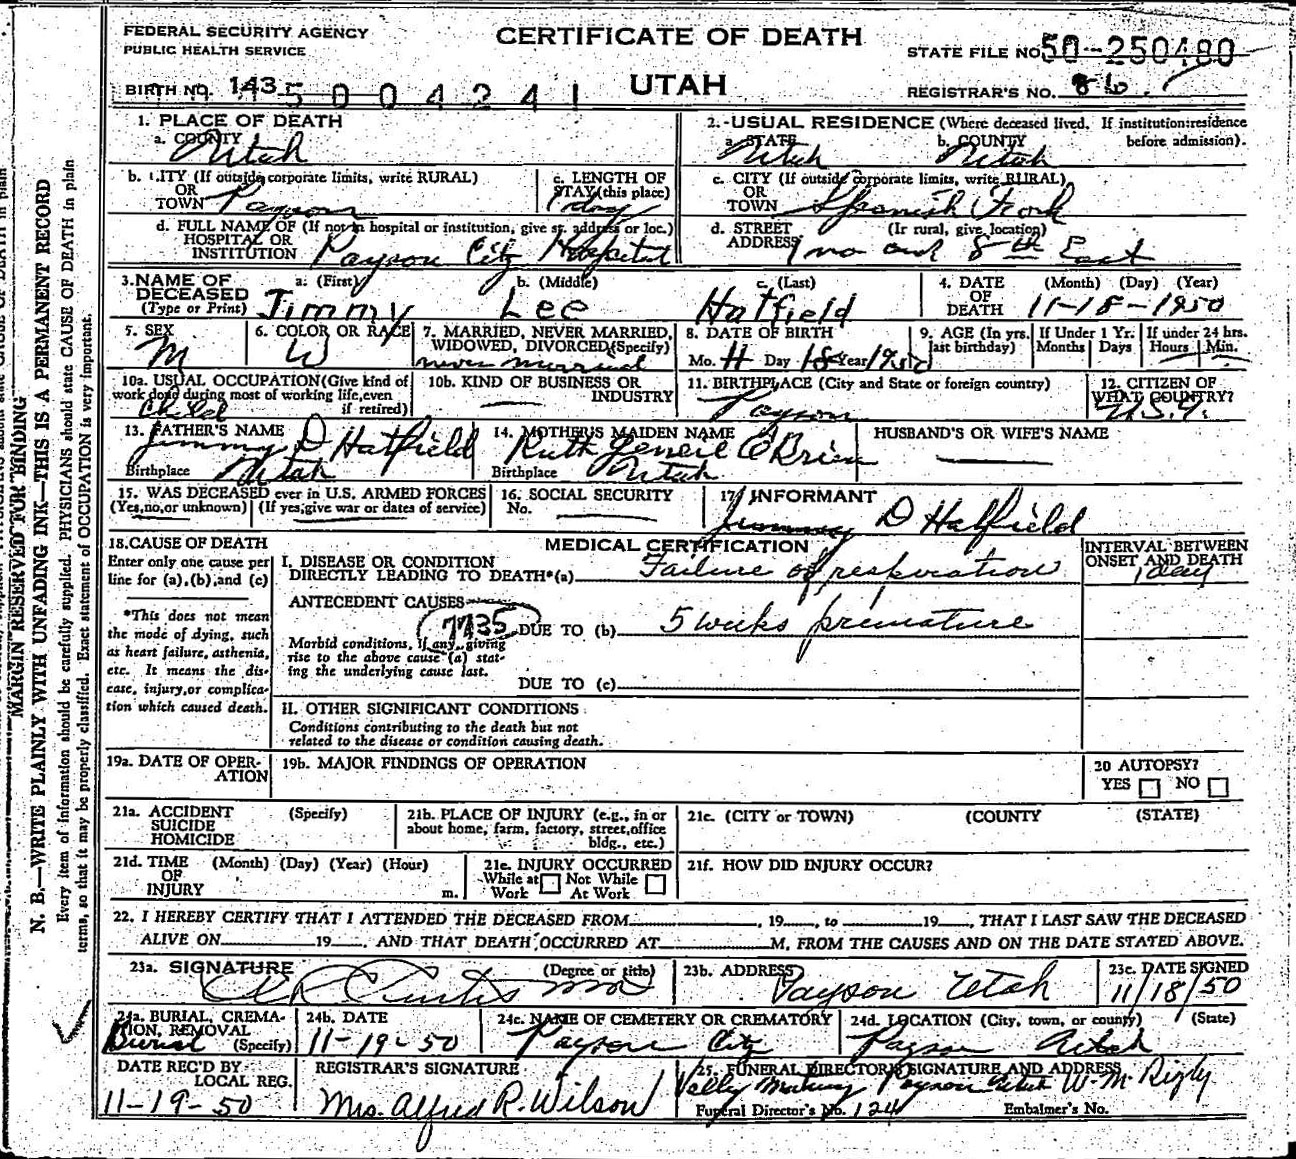 FEDERAL SECURITY AGENCY
PUBLIC HEALTH SERVICE
CERTIFICATE OF DEATH
UTAH
STATE FILE NO. 50-250480
BIRTH NO. 143 5 0 0 4 2 4 1
REGISTRAR'S NO. 86
1. PLACE OF DEATH
a. COUNTY Utah
2. USUAL RESIDENCE (Where deceased lived. If institution: residence before admission).
a. STATE Utah b. COUNTY Utah
b. CITY (If outside corporate limits, write RURAL) OR TOWN Payson
c. LENGTH OF STAY (this place) 1 day
c. CITY (If outside corporate limits, write RURAL) OR TOWN Spanish Fork
d. FULL NAME OF (If not in hospital or institution, give st. address or loc.) HOSPITAL OR INSTITUTION Payson City Hospital
d. STREET ADDRESS (Ir rural, give location) 1 no and 8th East
3. NAME OF DECEASED (Type or Print) a. (First) Jimmy b. (Middle) Lee c. (Last) Hatfield
4. DATE OF DEATH (Month) (Day) (Year) 11-18-1950
5. SEX M
6. COLOR OR RACE W
7. MARRIED, NEVER MARRIED, WIDOWED, DIVORCED (Specify) never married
8. DATE OF BIRTH Mo. 11 Day 18 Year 1950
9. AGE (In yrs. last birthday) If Under 1 Yr. Months Days If under 24 hrs. Hours Min.
10a. USUAL OCCUPATION (Give kind of work done during most of working life, even if retired) Child
10b. KIND OF BUSINESS OR INDUSTRY
11. BIRTHPLACE (City and State or foreign country) Payson
12. CITIZEN OF WHAT COUNTRY? U.S.A.
13. FATHER'S NAME Jimmy D Hatfield
Birthplace Utah
14. MOTHER'S MAIDEN NAME Ruth Geneil O'Brien
Birthplace Utah
HUSBAND'S OR WIFE'S NAME
15. WAS DECEASED ever in U.S. ARMED FORCES (Yes, no, or unknown) (If yes, give war or dates of service)
16. SOCIAL SECURITY No.
17. INFORMANT Jimmy D Hatfield
18. CAUSE OF DEATH
Enter only one cause per line for (a), (b), and (c)
*This does not mean the mode of dying, such as heart failure, asthenia, etc. It means the disease, injury, or complication which caused death.
MEDICAL CERTIFICATION
I. DISEASE OR CONDITION DIRECTLY LEADING TO DEATH*(a) Failure of respiration
INTERVAL BETWEEN ONSET AND DEATH 1 day
ANTECEDENT CAUSES
7735
Morbid conditions, if any, giving rise to the above cause (a) stating the underlying cause last.
DUE TO (b) 5 weeks premature
DUE TO (c)
II. OTHER SIGNIFICANT CONDITIONS
Conditions contributing to the death but not related to the disease or condition causing death.
19a. DATE OF OPERATION
19b. MAJOR FINDINGS OF OPERATION
20 AUTOPSY? YES NO
21a. ACCIDENT SUICIDE HOMICIDE (Specify)
21b. PLACE OF INJURY (e.g., in or about home, farm, factory, street, office bldg., etc.)
21c. (CITY or TOWN) (COUNTY (STATE)
21d. TIME OF INJURY (Month) (Day) (Year) (Hour) m.
21e. INJURY OCCURRED While at Work Not While At Work
21f. HOW DID INJURY OCCUR?
22. I HEREBY CERTIFY THAT I ATTENDED THE DECEASED FROM , 19 , to 19 , THAT I LAST SAW THE DECEASED
ALIVE ON 19 , AND THAT DEATH OCCURRED AT M, FROM THE CAUSES AND ON THE DATE STATED ABOVE.
23a. SIGNATURE (Degree or title) Curtis MD
23b. ADDRESS Payson Utah
23c. DATE SIGNED 11/18/50
24a. BURIAL, CREMATION, REMOVAL (Specify) Burial
24b. DATE 11-19-50
24c. NAME OF CEMETERY OR CREMATORY Payson City
24d. LOCATION (City, town, or county) (State) Payson Utah
DATE REC'D BY LOCAL REG. 11-19-50
REGISTRAR'S SIGNATURE Mrs. Alfred R. Wilson
25. FUNERAL DIRECTOR'S SIGNATURE AND ADDRESS Valley Mortuary Payson Utah W. M. Rigby
Funeral Director's No. 124 Embalmer's No.
MARGIN RESERVED FOR BINDING
N. B.—WRITE PLAINLY WITH UNFADING INK—THIS IS A PERMANENT RECORD
Every item of information should be carefully supplied. PHYSICIANS should state CAUSE OF DEATH in plain
terms, so that it may be properly classified. Exact statement of OCCUPATION is very important.